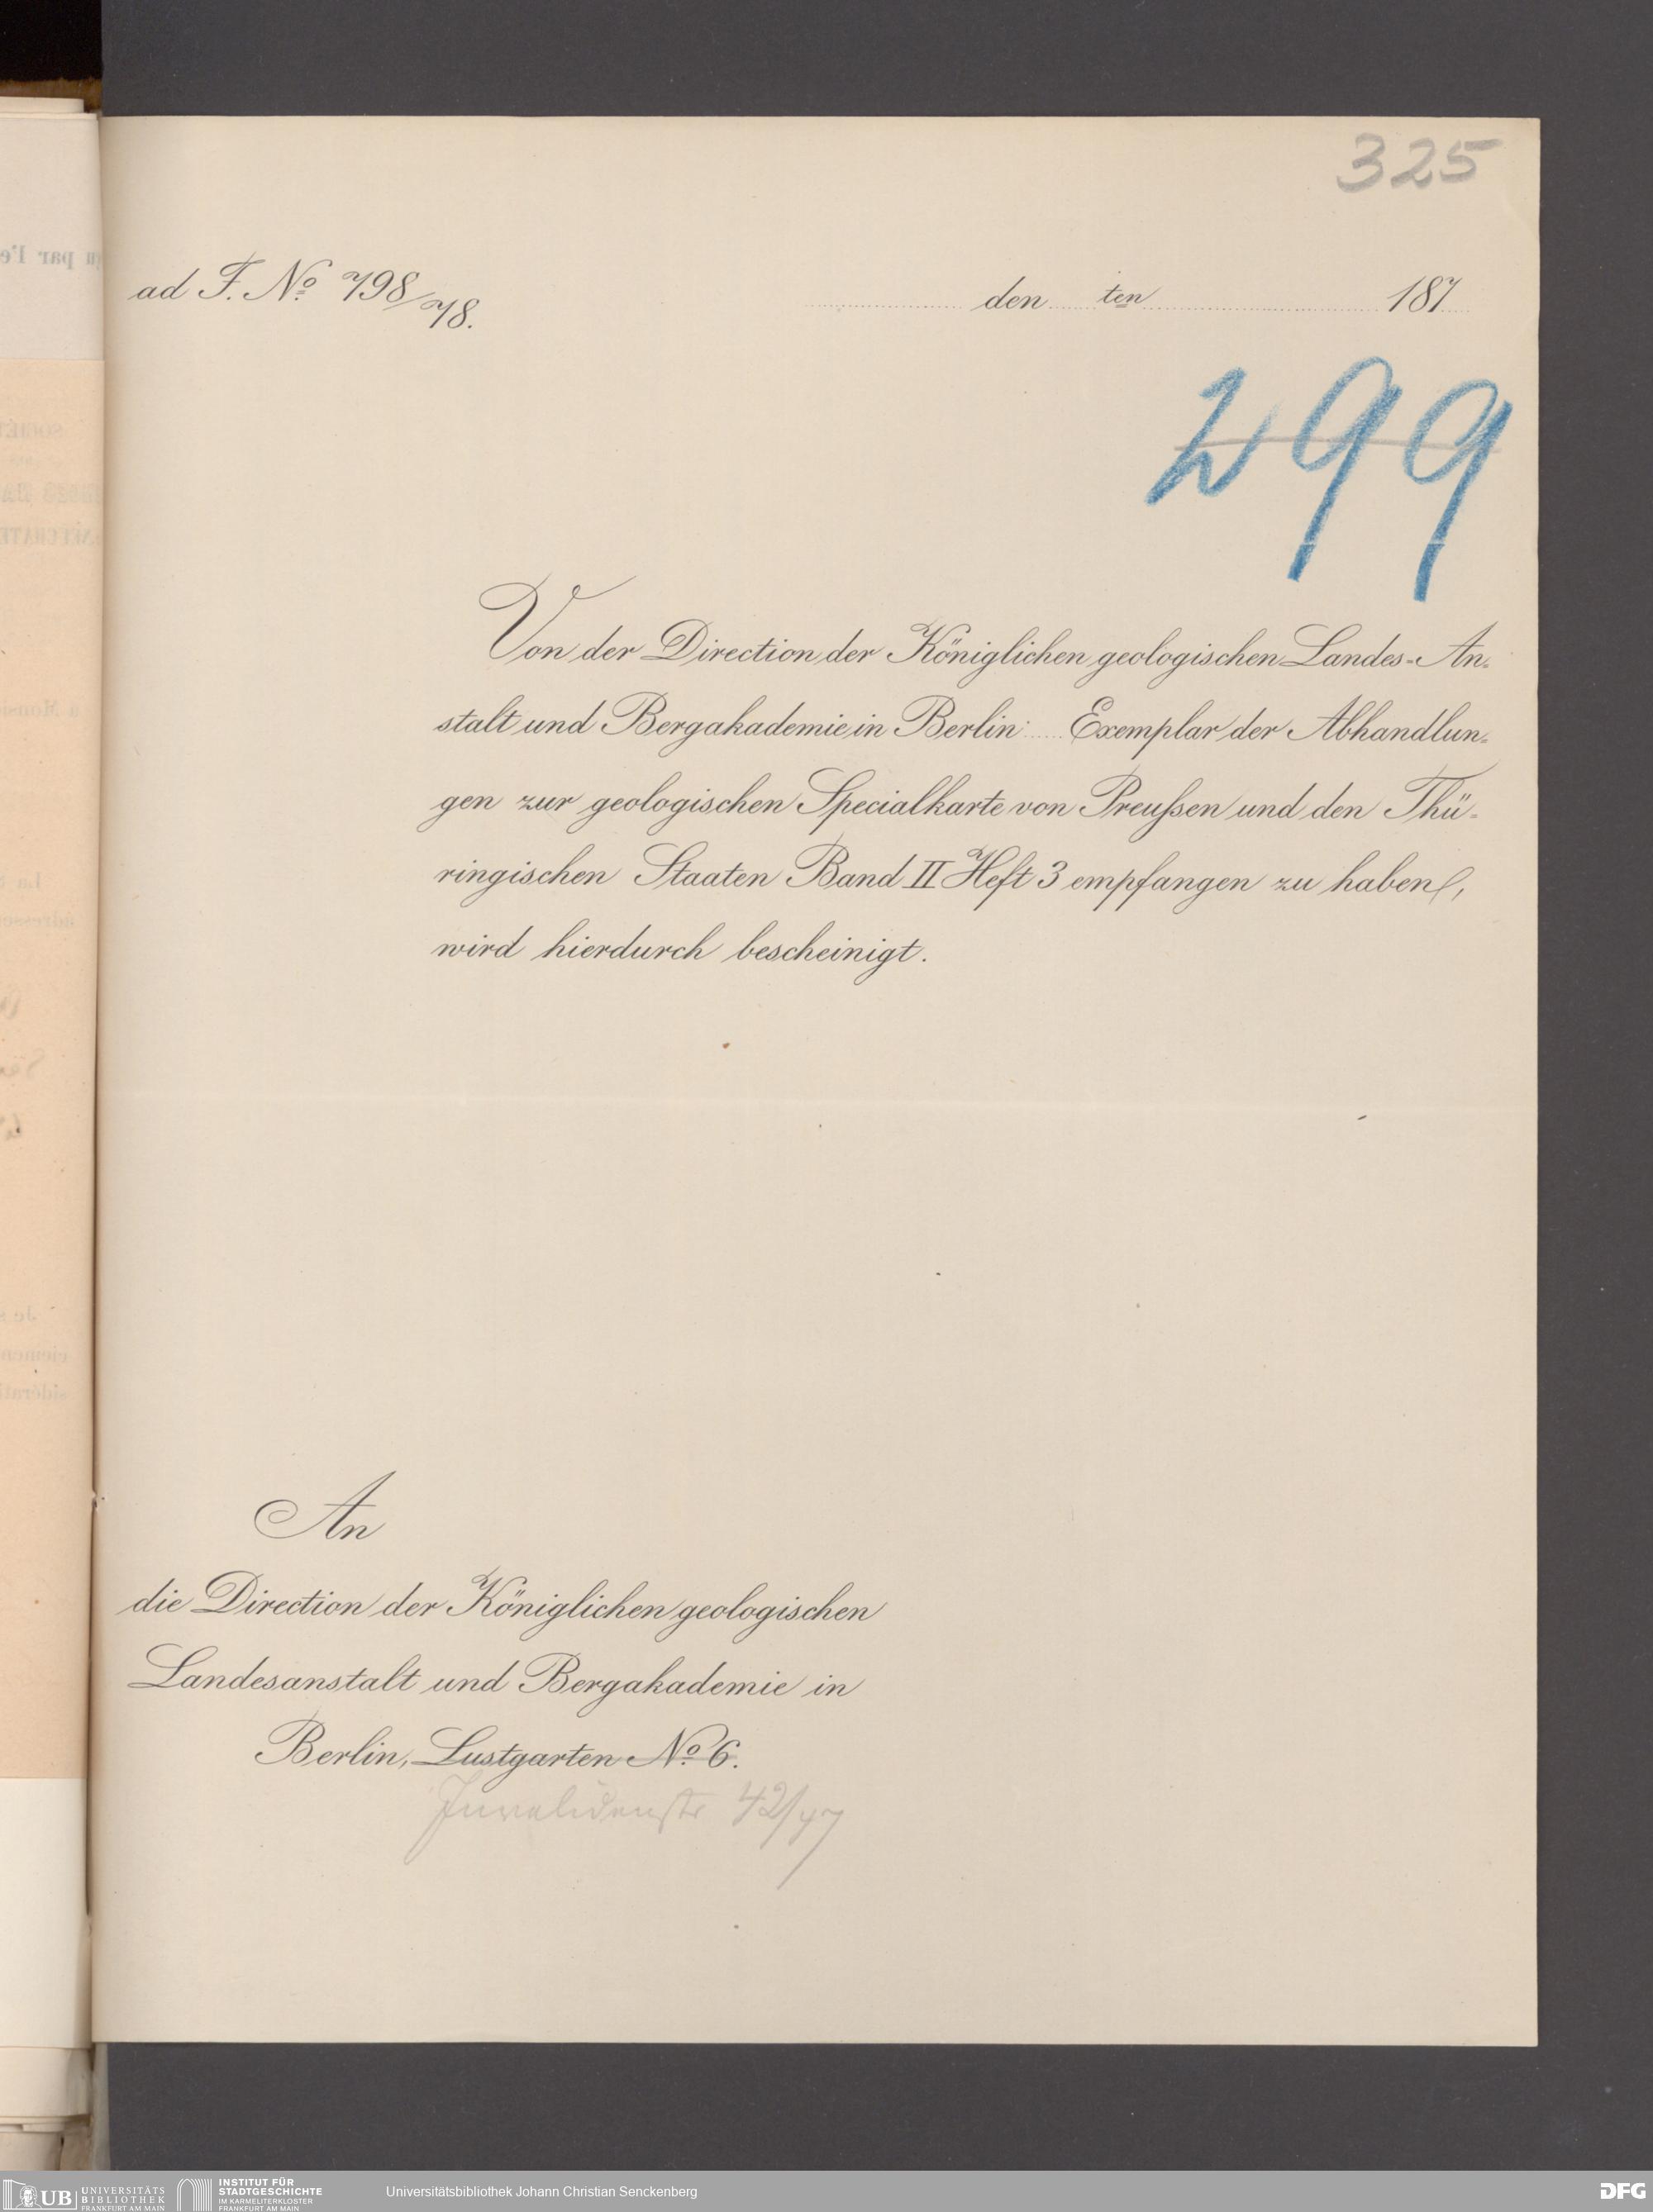 325
ad F. No 798/78.
den ten 187
299
Von der Direction der Königlichen geologischen Landes-An-
stalt und Bergakademie in Berlin Exemplar der Abhandlun-
gen zur geologischen Specialkarte von Preußen und den Thü-
ringischen Staaten Band II Heft 3 empfangen zu haben,
wird hierdurch bescheinigt.
An
die Direction der Königlichen geologischen
Landesanstalt und Bergakademie in
Berlin, Lustgarten No 6.
Invalidenstr 42/47
UB UNIVERSITÄTS
BIBLIOTHEK
FRANKFURT AM MAIN
INSTITUT FÜR
STADTGESCHICHTE
IM KARMELITERKLOSTER
FRANKFURT AM MAIN
Universitätsbibliothek Johann Christian Senckenberg
DFG